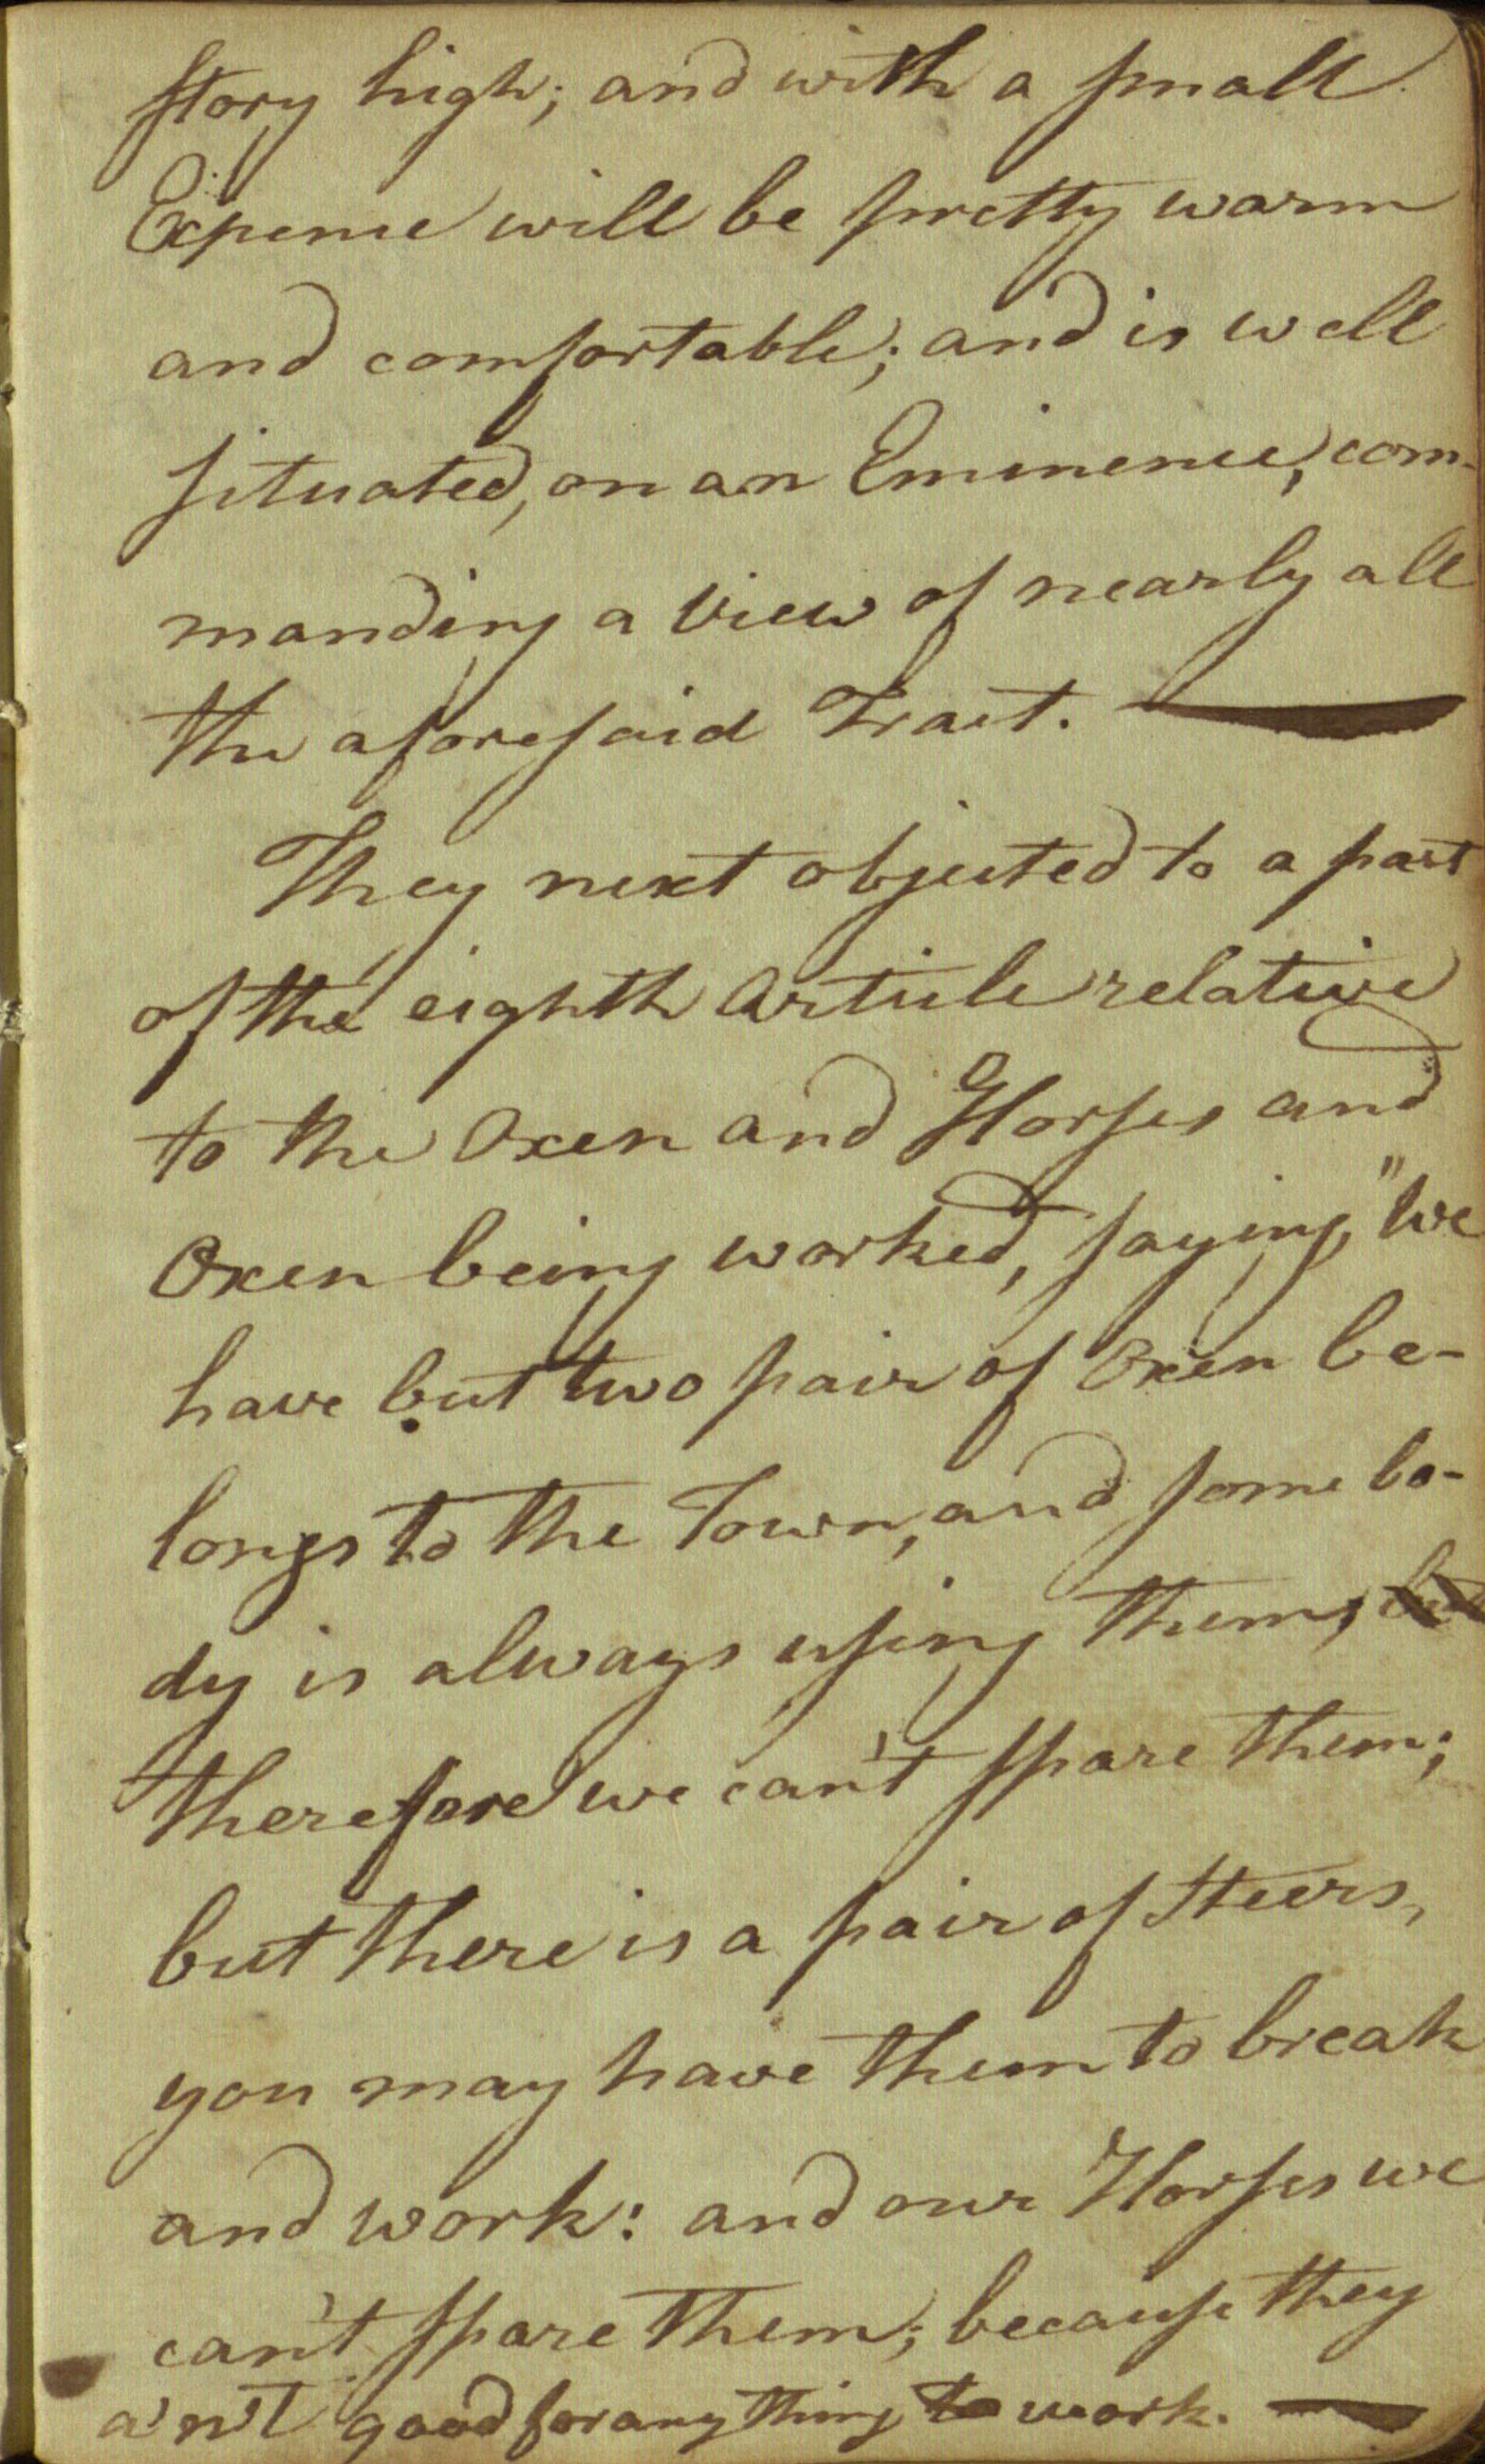 story high; and with a small
Expence will be pretty warm
and comfortable; and is well
situated, on an Eminence, com-
manding a View of nearly all
the aforesaid Tract. —
They next objected to a part
of the eighth Article relative
to the Oxen and Horses and
Oxen being worked, saying, "We
have but two pair of Oxen be-
longs to the Town, and some bo-
dy is always using them; but
therefore we can't spare them;
but there is a pair of Steers,
you may have them to break
and work: and our Horses we
can't spare them; because they
a'n't good for any thing to work. —